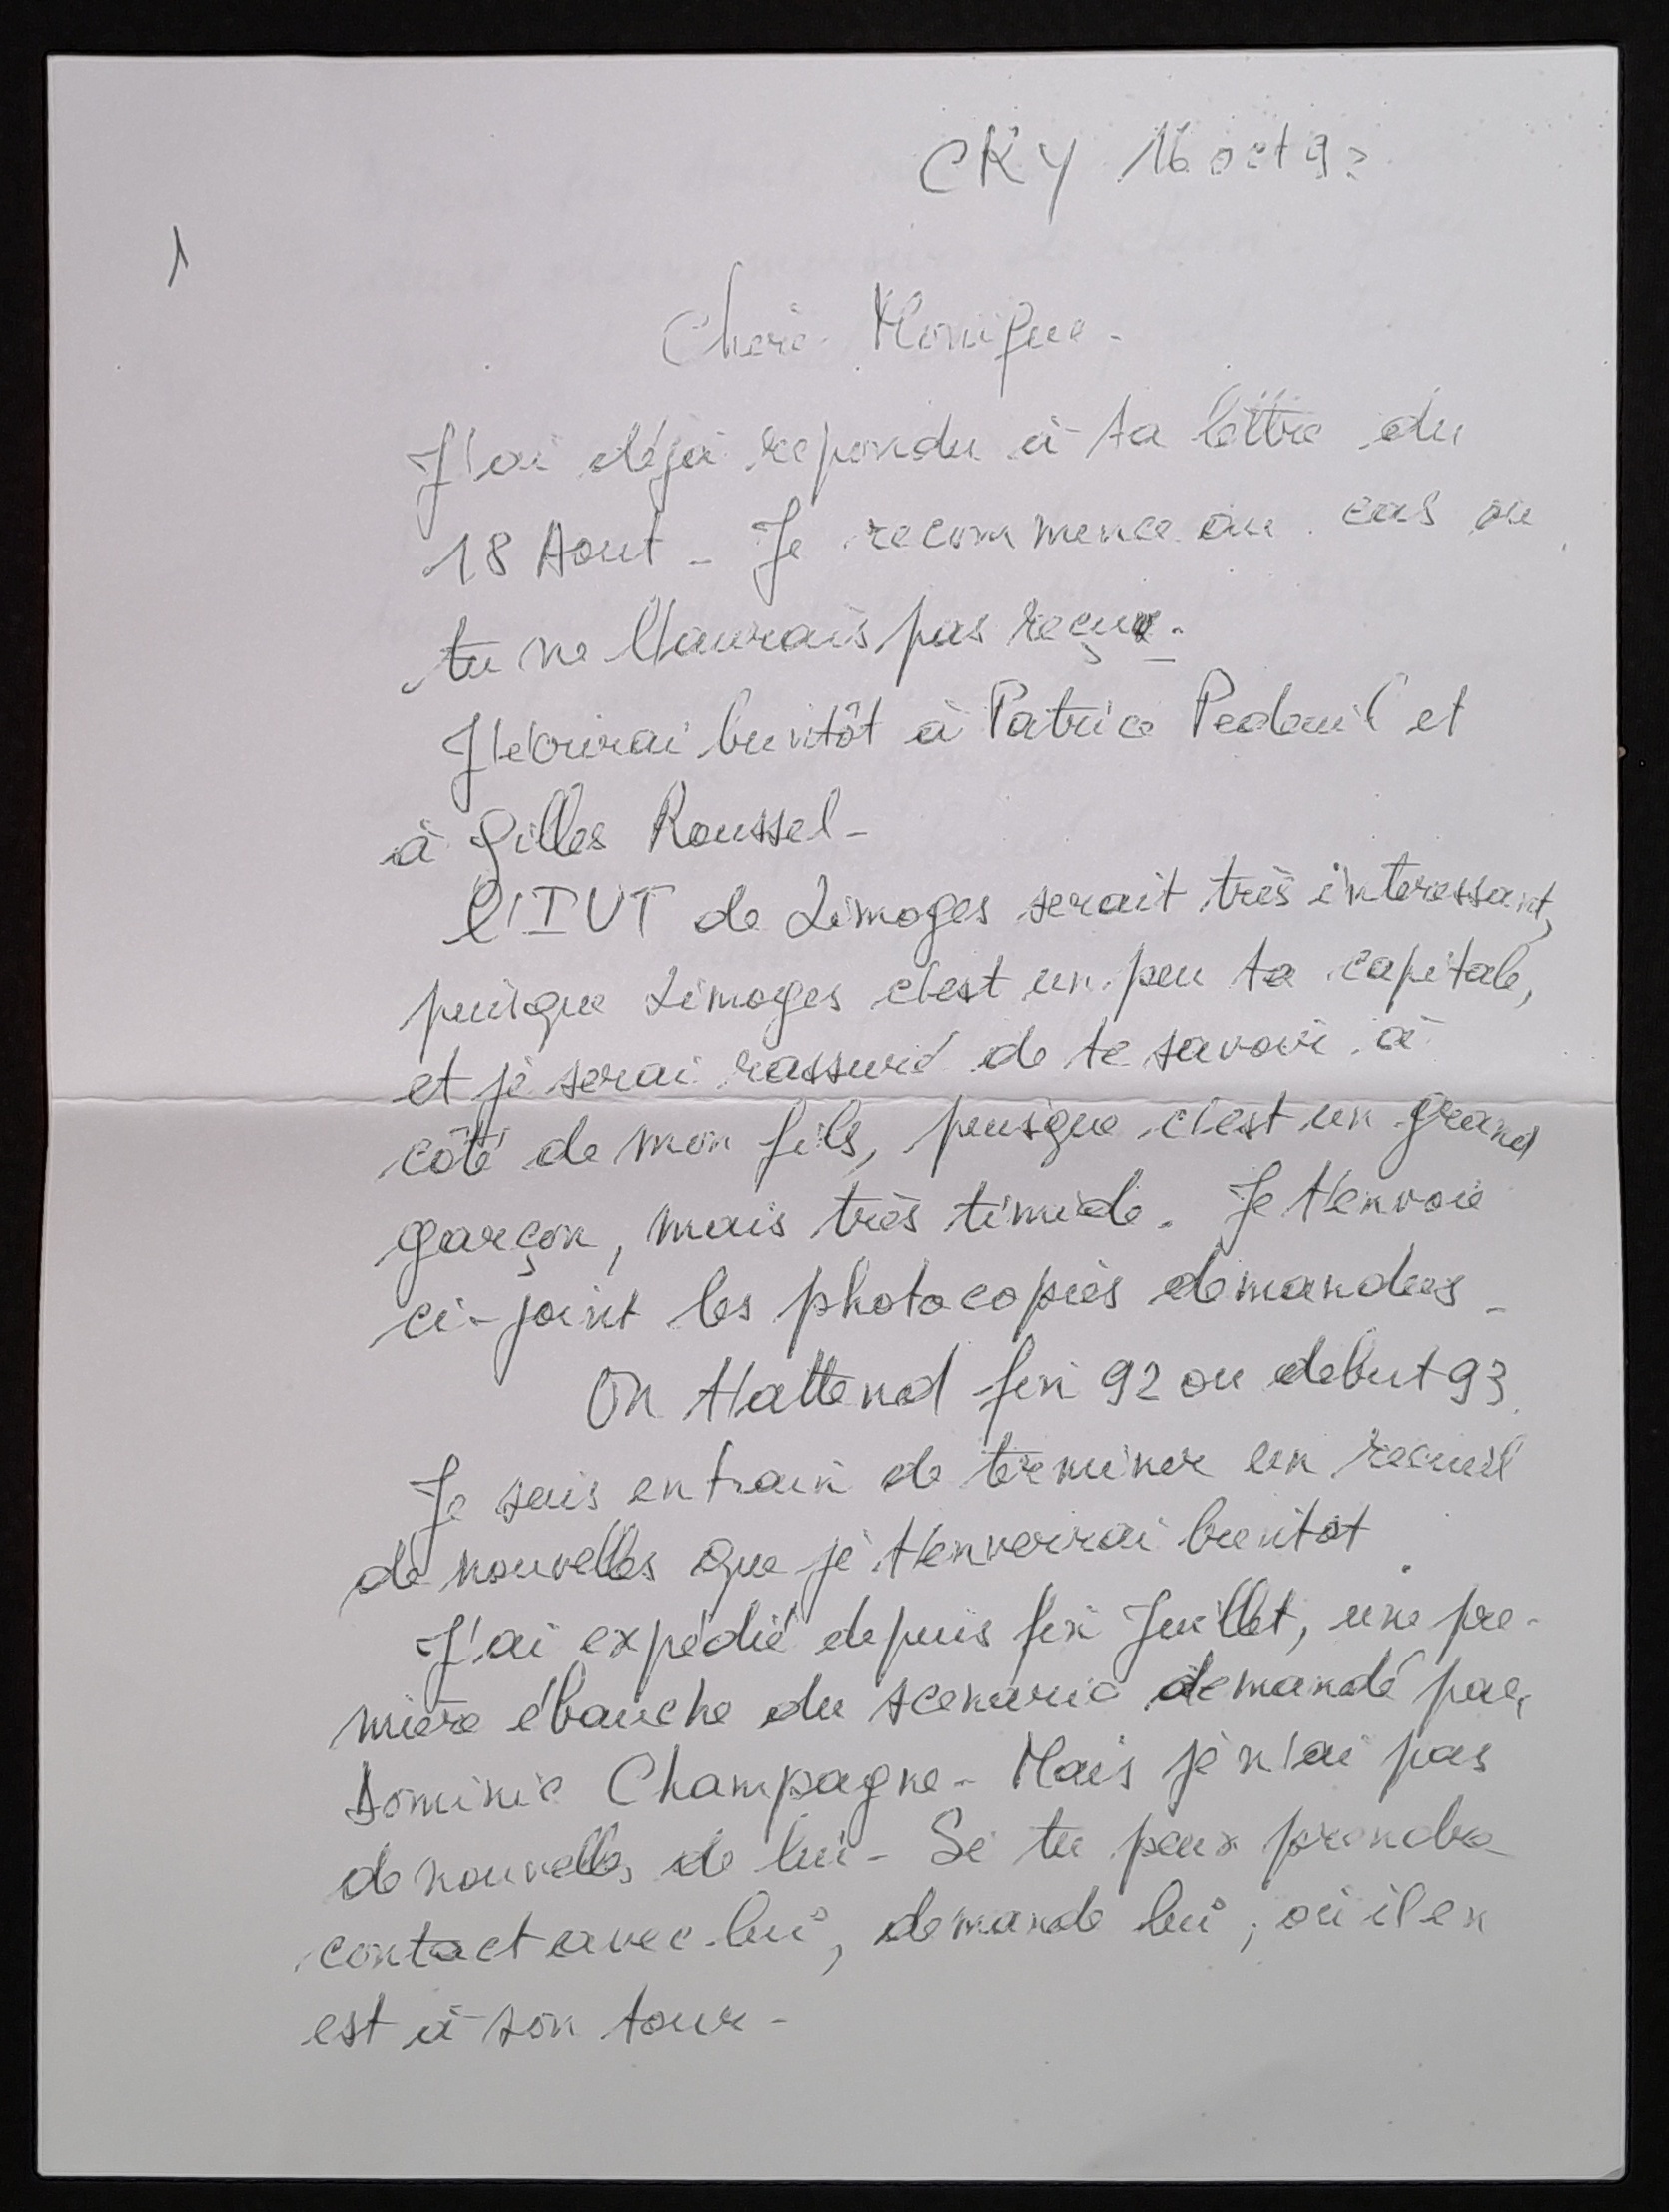 CKY 16 oct 92
1
Cherie Monique -
J'ai déjà repondu à ta lettre du
18 Aout - Je recommence au cas ou
tu ne l'aurais pas reçue -
J'ecrirai bientôt à Patrice et
à Gilles Roussel -
l'IUT de Limoges serait très interessant,
puisque Limoges c'est un peu ta capitale,
et je serai rassuré de te savoir à
côté de mon fils, puisque c'est un grand
garçon, mais très timide. Je t'envoie
ci-joint les photocopies demandees -
On t'attend fin 92 ou debut 93.
Je suis entrain de terminer un recueil
de nouvelles que je t'enverrai bientot.
J'ai expédié depuis fin Juillet, une pre-
mière ébauche du scenario demandé par,
Dominic Champagne - Mais je n'ai pas
de nouvelles de lui - Si tu peux prendre
contact avec lui, demande lui, où il en
est à son tour -